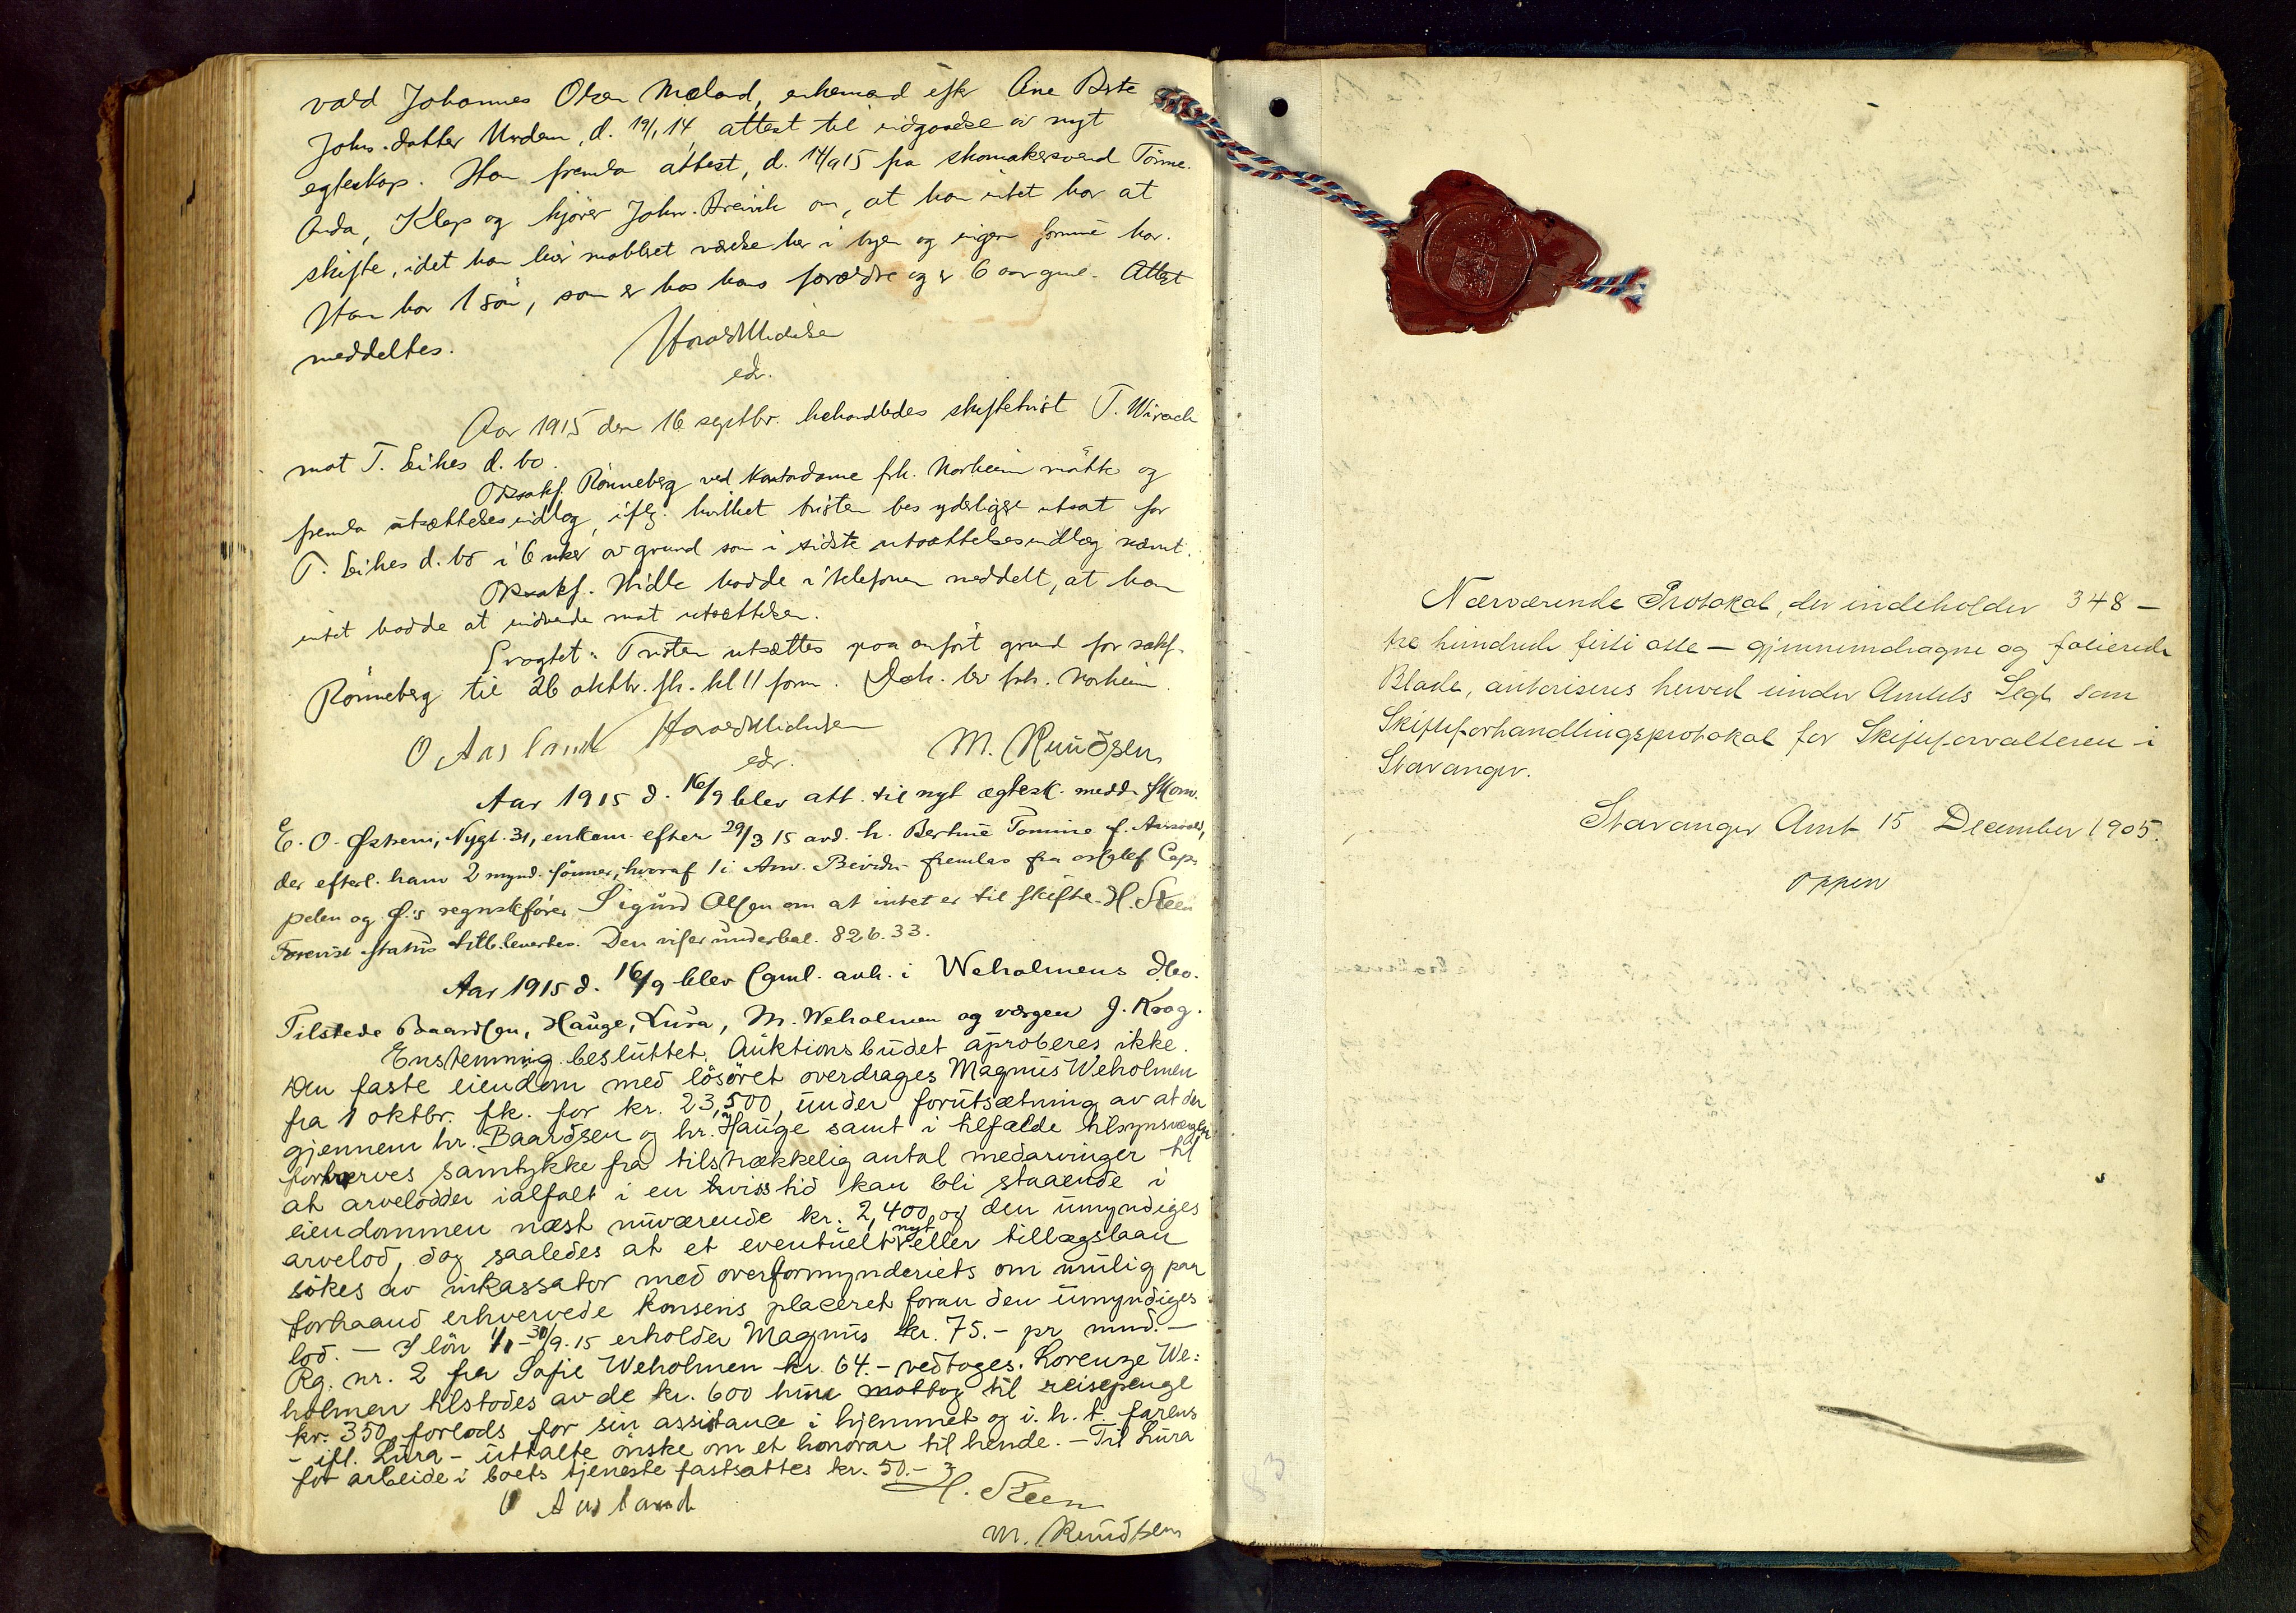 vald Johannes Olsen Mæland, enkemand eft. Ane Berte
Johs.datter Undem, d. 19/1 14, attest til indgaaelse av nyt
egteskap. Han fremla attest, d. 14/9 15 fra skomakersvend Tönnes
Anda, Klep og kjörer Johs. Breivik om, at han intet har at
skifte, idet han leier møbleret værelse her i byen og ingen formue har.
Han har 1 sön, som er hos hans forældre og er 6 aar gml. Attest
meddeltes.
Harald Michelsen
edv.
Aar 1915 den 16 septbr. behandledes skiftetvist T. Wiraek
mot T. Eikes d. bo.
Orsakf. Rönneberg ved kontordame frk. Norheim mötte og
fremla utsættelsesindlæg, iflg. hvilket tvisten bes yderligere utsat for
T. Eikes d. bo i 6 uker av grund som i sidste utsættelsesindlæg nævnt.
Orsakf. Hidle hadde i telefonen meddelt, at han
intet hadde at indvende mot utsættelsen.
Eragtet: Tvisten utsættes paa anfört grund for sakf.
Rönneberg til 26 oktbr. fk. kl 11 form. Dek. bv frk. Norheim.
O Ausland Harald Michelsen M. Knudsen
edv.
Aar 1915 d. 16/9 blev att. til nyt ægtesk. medd. skom.
E. O. Østrem, Nygt. 31, enkem. efter 29/3 15 avd. h. Bertine Tomine f. Aarsvold,
der efterl. ham 2 mynd. sönner, hvoraf 1 i Am. Bevidn. fremlas fra os Cap-
pelen og Ø.s regnskförer Sigurd Olsen om at intet er til skifte. H. Steen
Forevist status tilb.levertes. Den viser underbal. 826.33.
Aar 1915 d. 16/9 blev saml. avh. i Weholmens dbo.
Tilstede Baardsen, Hauge, Lura, M. Weholmen og værgen J. Krog.
Enstemmig besluttet. Auktionsbudet aproberes ikke.
Den faste eiendom med lösöret overdrages Magnus Weholmen
fra 1 oktbr. fk. for kr. 23,500, under forutsætning av at der
gjennem hr. Baardsen og hr. Hauge samt i tilfælde tilsynsværgen
forhverves samtykke fra tilstrækkelig antal medarvinger til
at arvelodder ialfalt i en hviss tid kan bli staaende i
eiendommen næst nuværende kr. 2,400 og den umyndiges
arvelod, dog saaledes at et eventuelt nyt eller tillægslaan
sökes av inkassator med overformynderiets om mulig paa
forhaand erhvervede konsens placeret foran den umyndiges
lod. – I lön 1/1–30/9.15 erholder Magnus kr. 75.– pr mnd. –
Rg. nr. 2 fra Sofie Weholmen kr. 64.– vedtoges. Lorenze We:
holmen tilstodes av de kr. 600 hun mottog til reisepenge
kr. 350 forlods for sin assistance i hjemmet og i. h. t. farens
– ifl. Lura – uttalte önske om et honorar til hende. – Til Lura
for arbeide i boets tjeneste fastsattes kr. 50.–
O Ausland H. Steen
M. Knudsen
Nærværende Protokol, der indeholder 348 –
tre hundrede firti otte – gjennemdragne og folierede
Blade, autoriseres herved under Amtets Segl som
Skifteforhandlingsprotokol for Skifteforvalteren i
Stavanger.
Stavanger Amt 15 December 1905.
Oppen
83